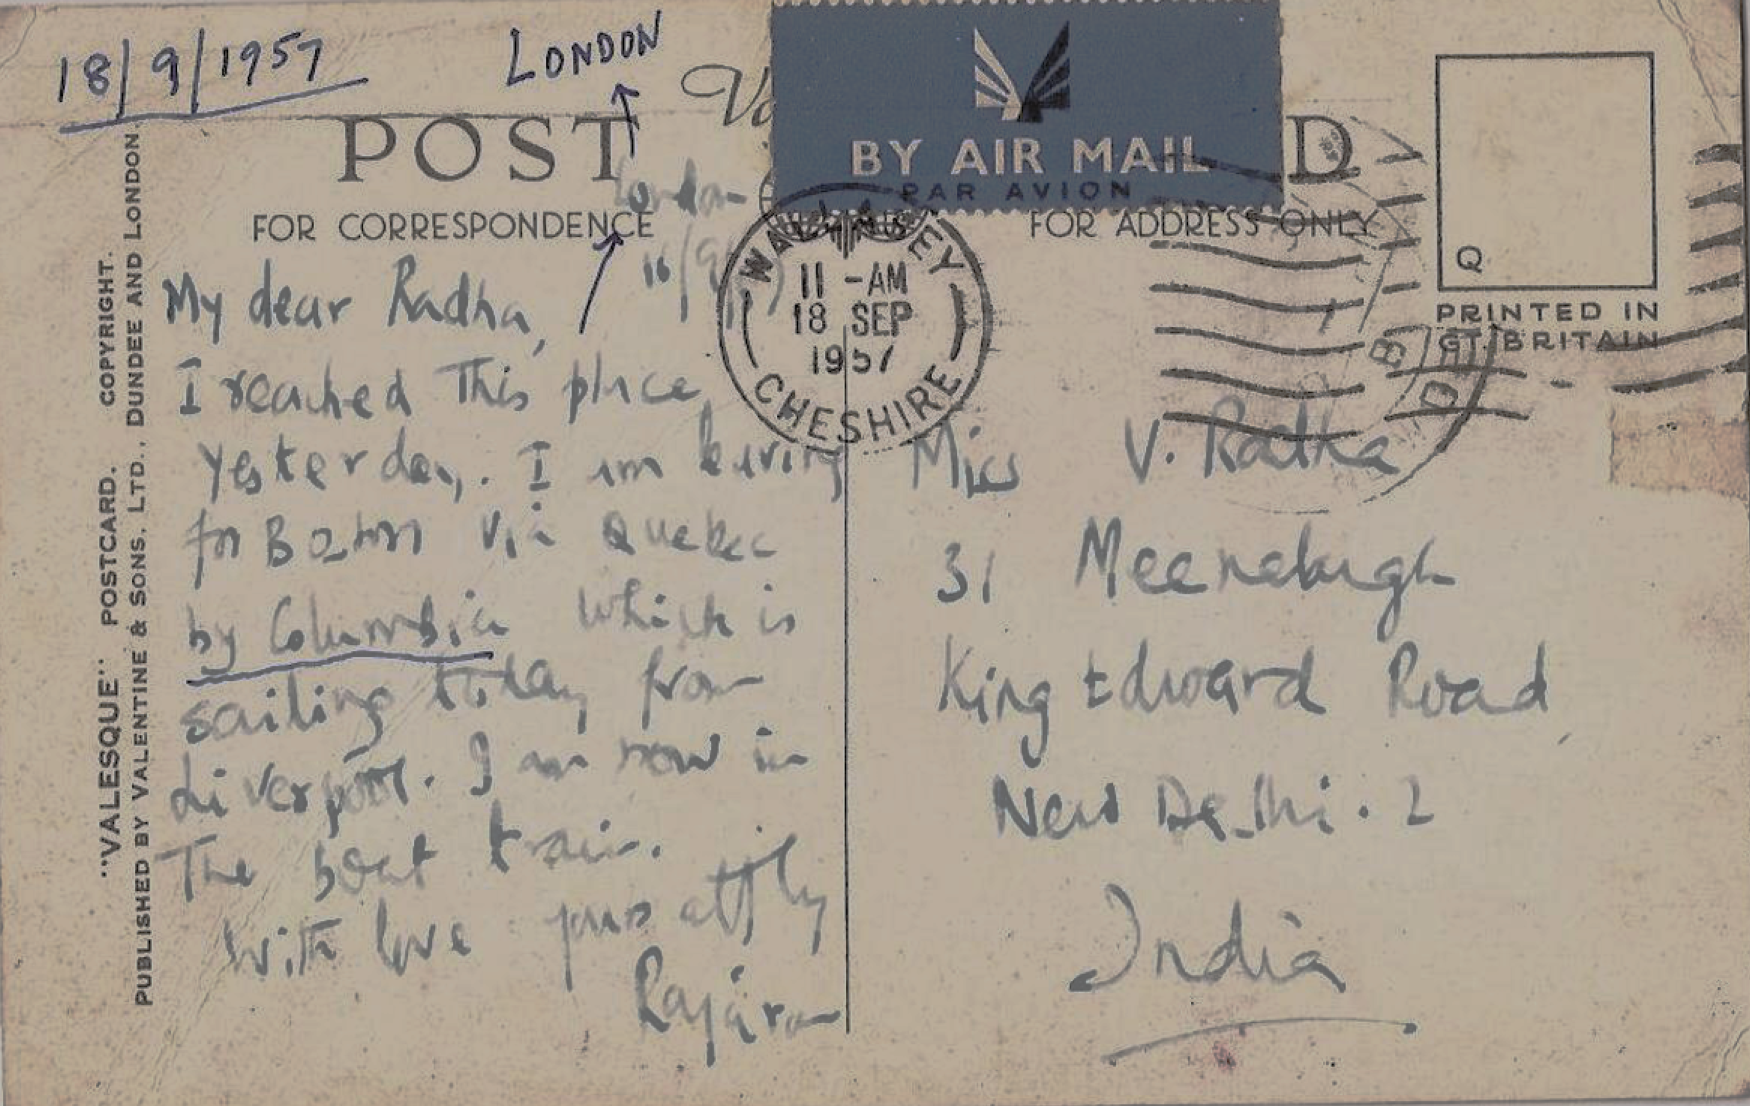 18/9/1957
LONDON
POST D
BY AIR MAIL
PAR AVION
FOR CORRESPONDENCE
FOR ADDRESS ONLY
London
16/9
WALLASEY
11 -AM
18 SEP
1957
CHESHIRE
Q
PRINTED IN
GT. BRITAIN
"VALESQUE" POSTCARD. COPYRIGHT.
PUBLISHED BY VALENTINE & SONS, LTD., DUNDEE AND LONDON.
My dear Radha,
I reached This place
yesterday. I am leaving
for Boston via Quebec
by Columbia which is
sailing today from
Liverpool. I am now in
The boat train.
With love yours affly
Rajaram
Miss V. Radha
31 Meenabagh
King Edward Road,
New Delhi. 2
India